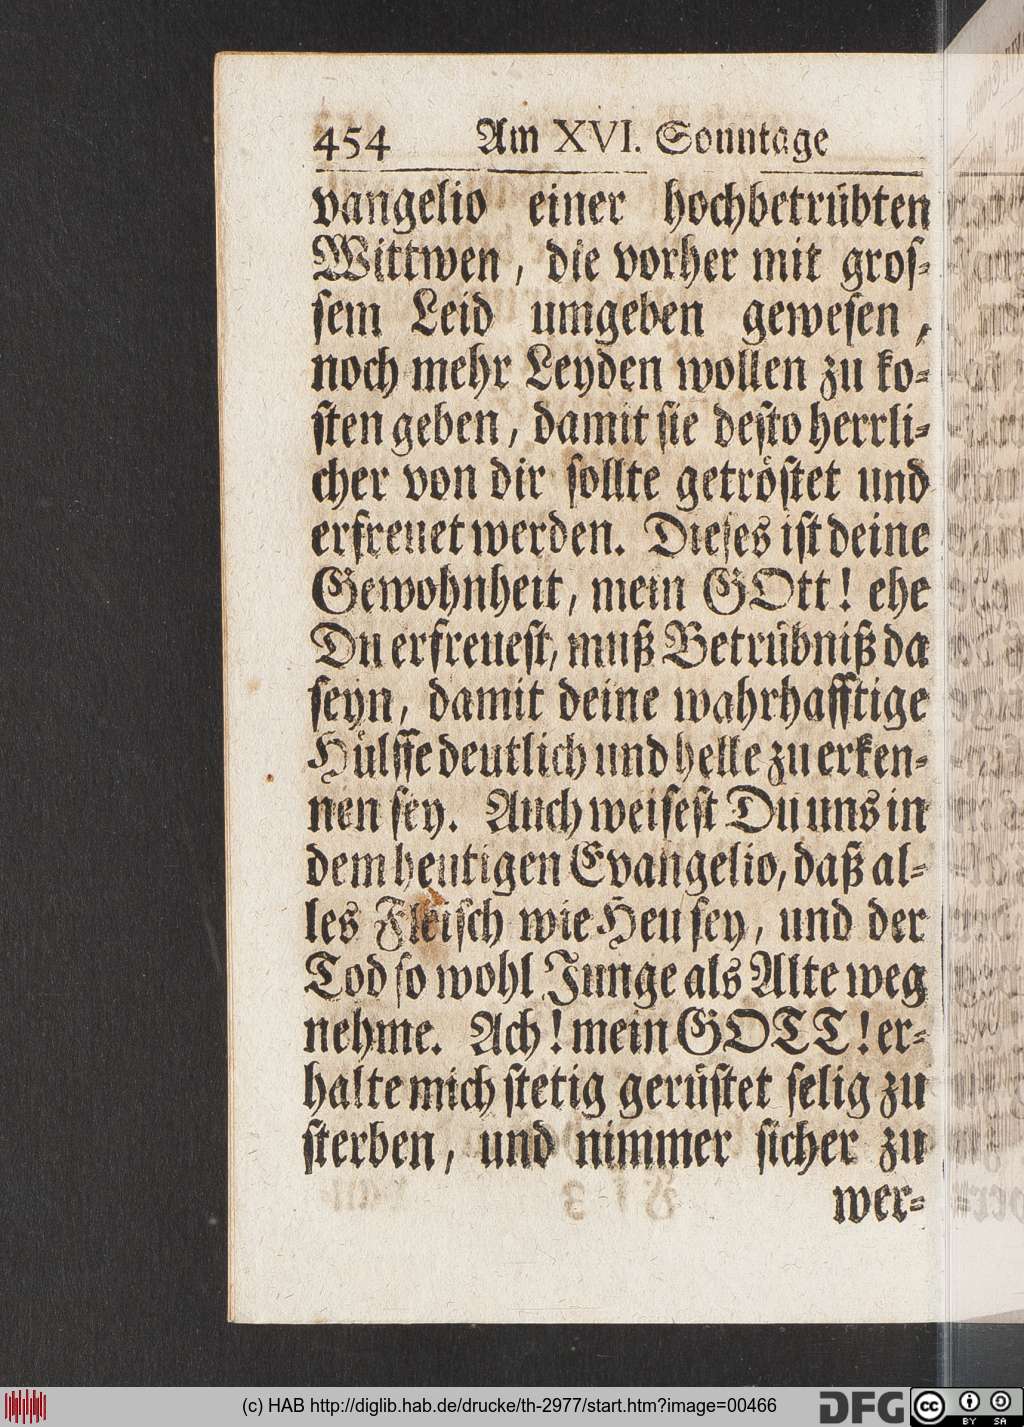 454 Am XVI. Sonntage
vangelio einer hochbetrübten
Wittwen, die vorher mit gros-
sem Leid umgeben gewesen,
noch mehr Leyden wollen zu ko-
sten geben, damit sie desto herrli-
cher von dir sollte getröstet und
erfreuet werden. Dieses ist deine
Gewohnheit, mein GOtt! ehe
Du erfreuest, muß Betrübniß da
seyn, damit deine wahrhafftige
Hülffe deutlich und helle zu erken-
nen sey. Auch weisest Du uns in
dem heutigen Evangelio, daß al-
les Fleisch wie Heu sey, und der
Tod so wohl Junge als Alte weg
nehme. Ach! mein GOTT! er-
halte mich stetig gerüstet selig zu
sterben, und nimmer sicher zu
wer-
(c) HAB http://diglib.hab.de/drucke/th-2977/start.htm?image=00466
DFG
cc BY SA